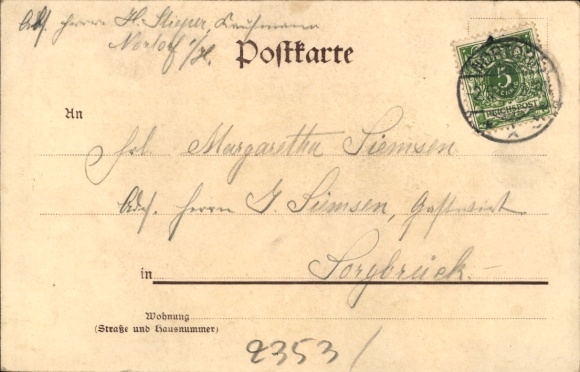 Adr. Herrn H. Stieper, Kaufmann
Nortorf i/H.
Postkarte
NORTORF
5
REICHSPOST
An
Frl. Margaretha Siemsen
Adr. Herrn J. Siemsen, Gastwirt
in Sorgbrück.-
Wohnung
(Straße und Hausnummer)
2353/